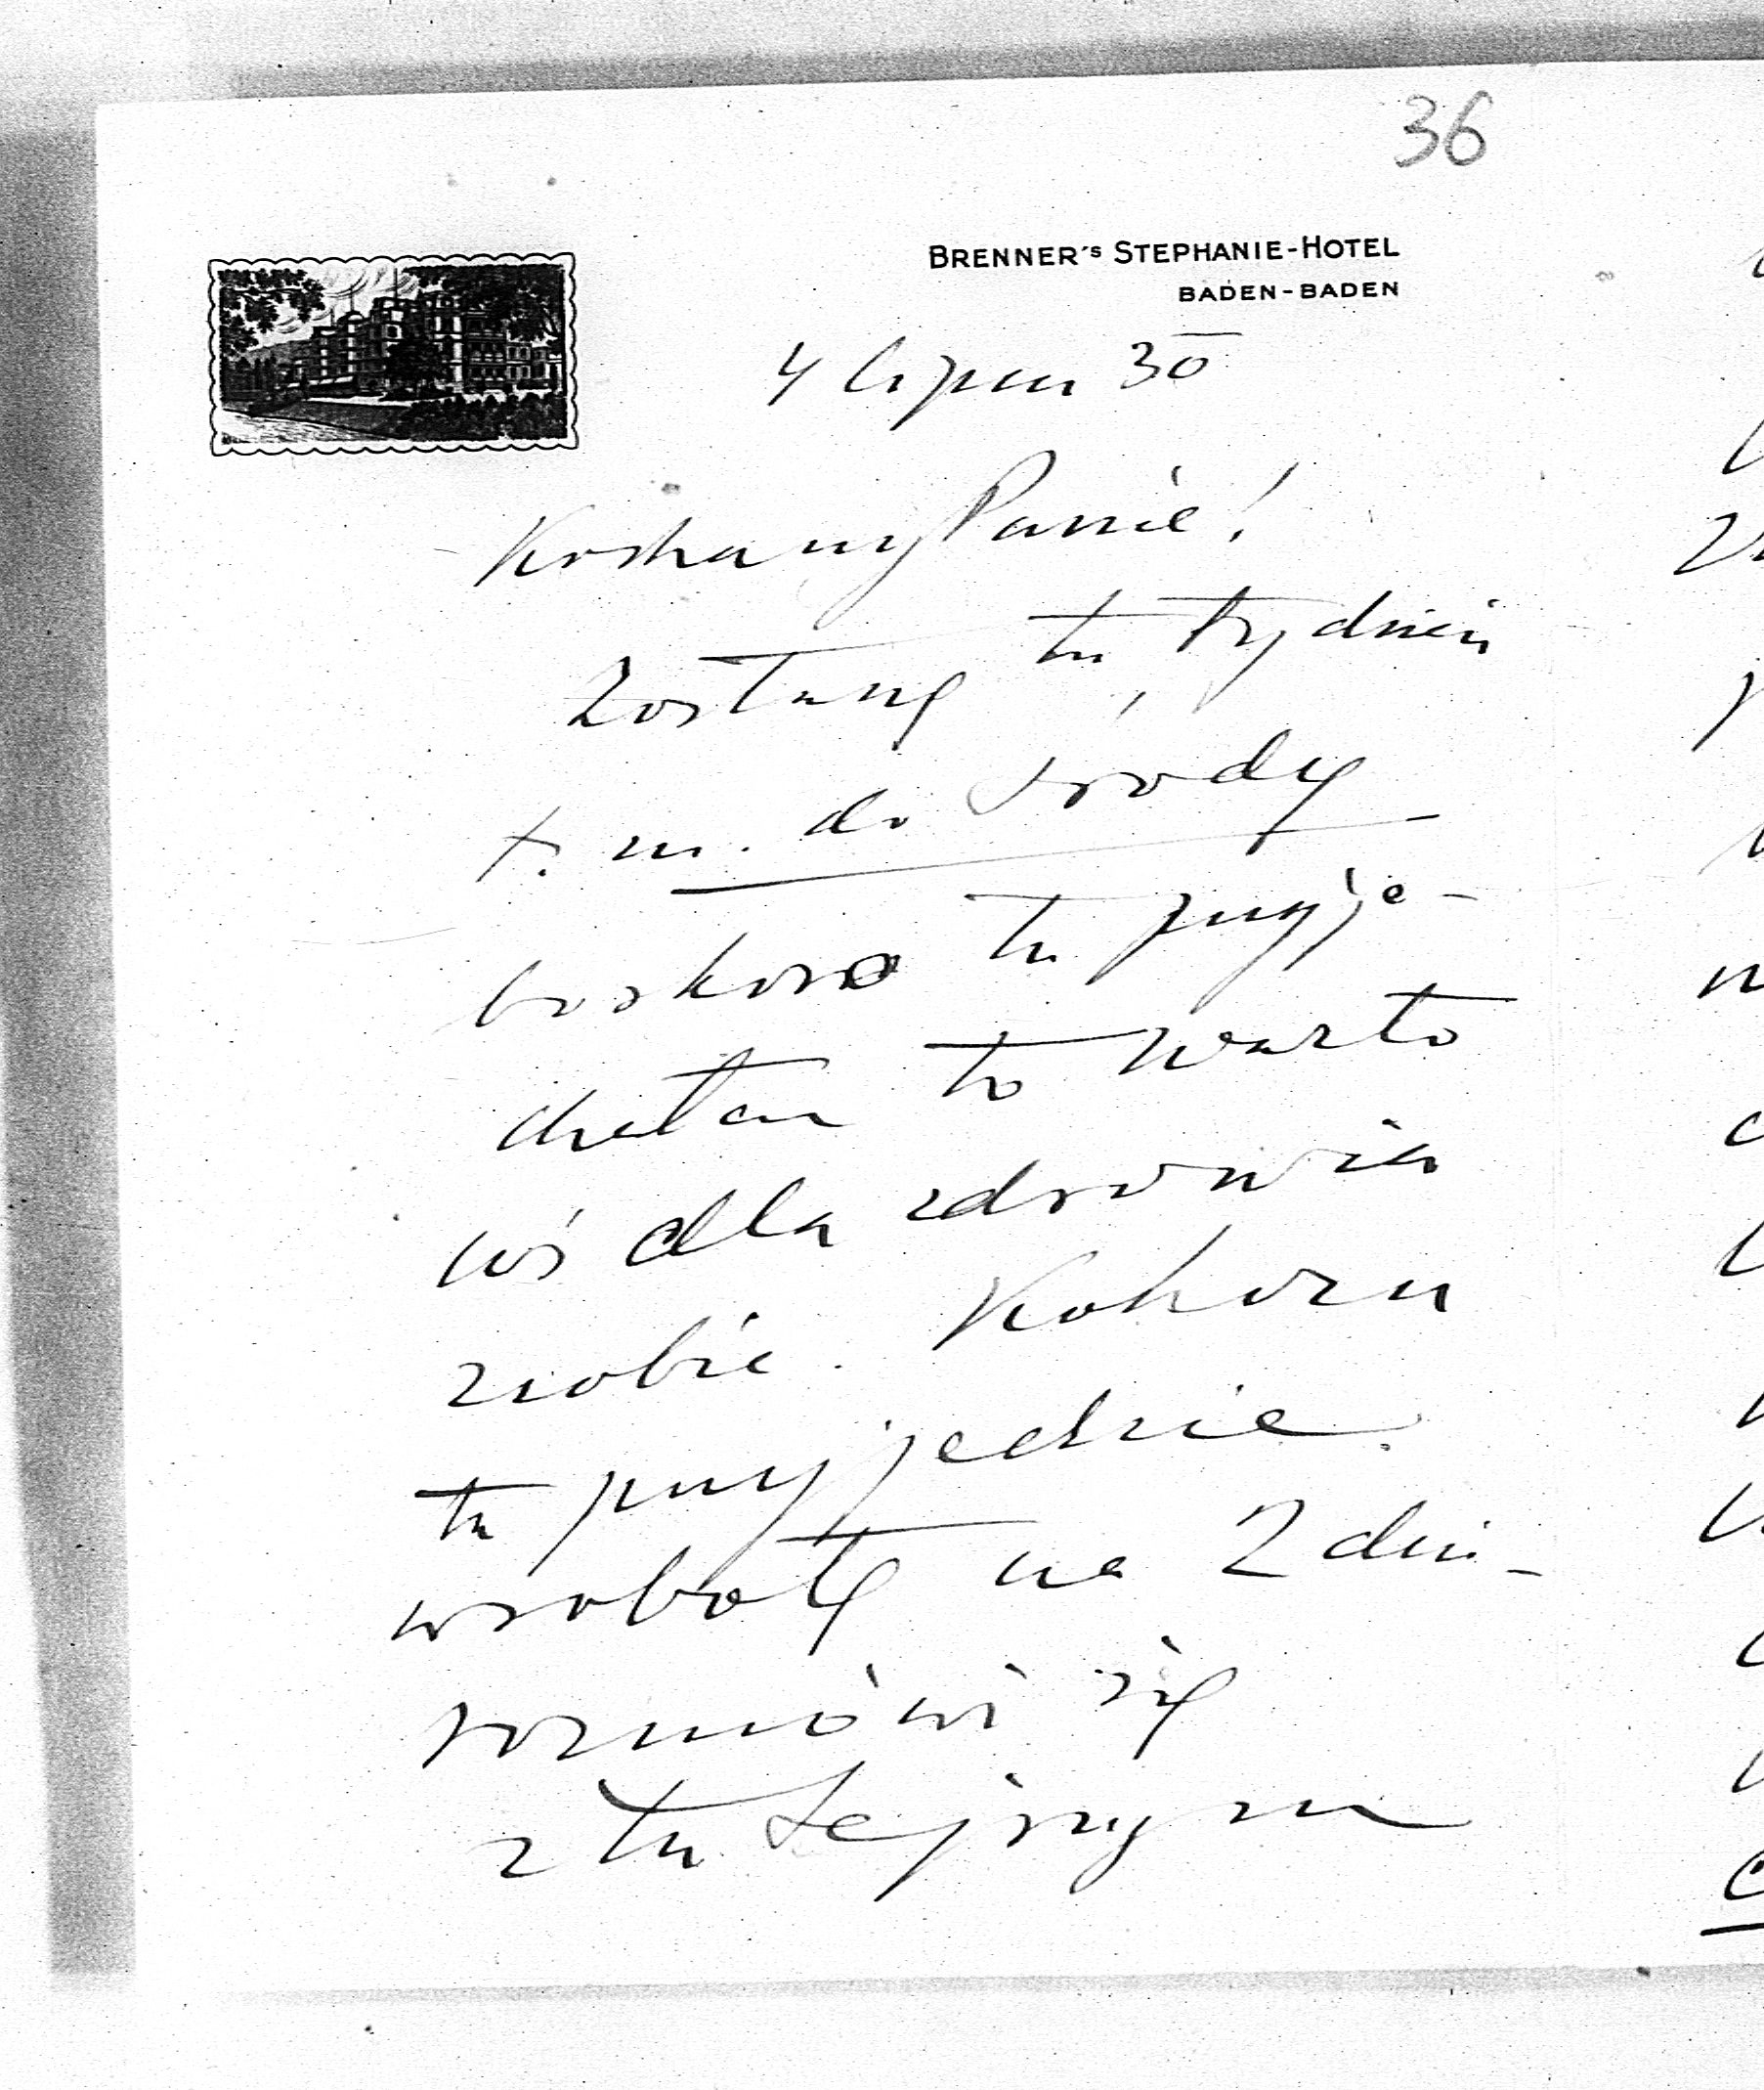 36
BRENNER'S STEPHANIE-HOTEL
BADEN-BADEN
4 lipca 30
Kochany Panie!
Zostanę tu tydzień
t. m. do środy
bo skoro tu przyje-
chałam to warto
coś dla zdrowia
zrobić. Kohorn
tu przyjedzie
w sobotę na 2 dni -
rozmówi się
z tutejszym